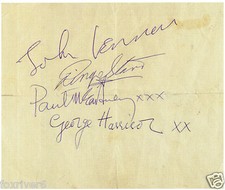 John Lennon
Ringo Starr
Paul McCartney xxx
George Harrison xx